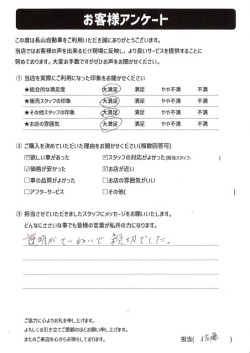 お客様アンケート
この度は長山自動車をご利用いただき誠にありがとうございます。
当店ではお客様の声を出来るだけ現場に反映し、より良いサービスを提供することに
努めております。大変お手数ですがぜひお声をお聞かせください。
① 当店を実際にご利用になった印象をお聞かせください
★総合的な満足度 大満足 満足 やや不満 不満
★販売スタッフの印象 大満足 満足 やや不満 不満
★その他スタッフの印象 大満足 満足 やや不満 不満
★お店の雰囲気 大満足 満足 やや不満 不満
② ご購入を決めていただいた理由をお聞かせください(複数回答可)
☑欲しい車があった ☑スタッフの対応がよかった(担当スタッフ: )
☑価格が安かった ☑お店が近い
□車の品質がよかった □お店の雰囲気がいい
□アフターサービス □その他( )
③ 担当させていただきましたスタッフにメッセージをお願いいたします。
どんなにささいな事でも皆様の言葉が私共の力になります。
説明がていねいで親切でした。
ご協力に心よりお礼を申し上げます。
よろしくお引き立てご愛顧のほどお願い申し上げます。
またのご来店を心からお待ちしております。 担当( 佐藤 )